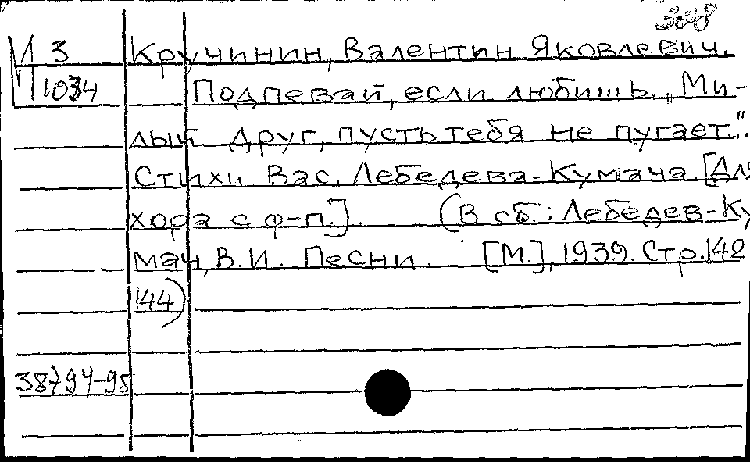 308
М 3 Кручинин, Валентин Яковлевич.
П1034 Подпевай, если любишь. „Ми-
лый друг, пусть тебя не пугает".
Стихи Вас. Лебедева-Кумача. [Для
хора с ф-п.]. (В сб.: Лебедев-Ку
мач, В.И. Песни. [М.], 1939. Стр. 142
144)
38794-95